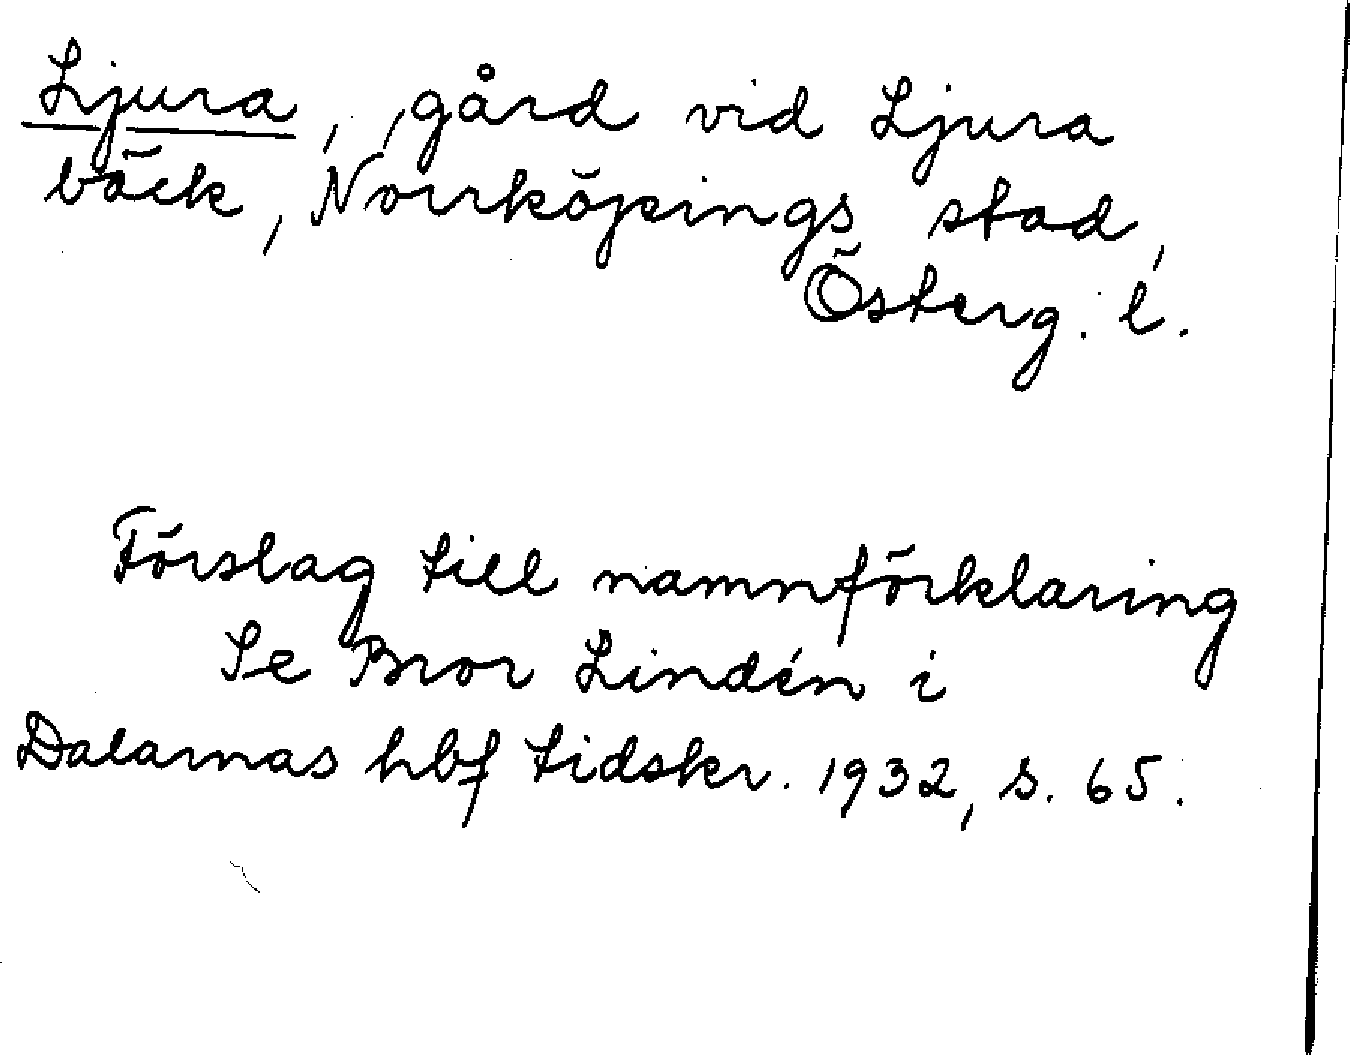 Ljura, gård vid Ljura
bäck, Norrköpings stad,
Österg. l.
Förslag till namnförklaring
Se Bror Lindén i
Dalarnas hbf tidskr. 1932, s. 65.